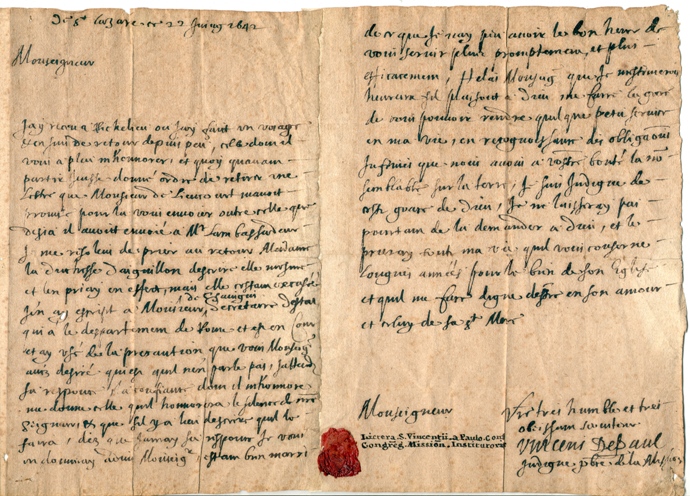 De St Lazare ce 22 Juing 1642
Monseigneur
Jay receu a Richelieu ou jay faict un voyage
et suis de retour depuis peu, celle dont il
vous a pleu mhonnorer, et quoy quavant
partir jeusse donné ordre de retirer une
lettre que Monsieur de Liancourt mavoit
pour la vous envoier outre celle que
desia il avoit envoiée a Mr Lambassadeur
Je me resolus de prier au retour Madame
la duchesse daiguillon descrire elle mesme
et len priay en effect, mais elle sestant excusée
Jen ay escript a Monsieur de Chavigni secretaire destat
qui a le departement de Rome et est en Cour
et ay usé de la precaution que vous Monseigr
avez desiré qui est quil nen parle pas; Jattends
sa response, la confiance dont il mhonnore
me donne celle quil honnorera le silence de
et que sil y a lieu desirer quil le
fera, dez que jauray sa response je vous
en donneray advis Monseigr, estant bien marri
de ce que Je nay peu avoir le bon heur de
vous servir plus promptement, et plus
efficacement, Helas Monseigr que Je mestimerois
heureux sil plaisoit a Dieu me faire la grace
de vous pouvoir rendre quelque petit service
en ma vie, en recognoissance des obligaons
infinies que nous avons a vostre bonté la non
semblable sur la terre, Je suis Indigne de
ceste grace de Dieu, Je ne laisseray pas
pourtant de la demander a Dieu, et le
prieray toute ma vie quil vous conserve
longues années pour le bien de son Eglise
et quil me face digne destre en son amour
et celuy de sa Ste Mere
Monseigneur
Vre tres humble et tres
obeissant serviteur
Vincens Depaul
Indigne pbre de la Mission
Littera S. Vincentii a Paulo. Cong
Congreg. Mission. Institutoris